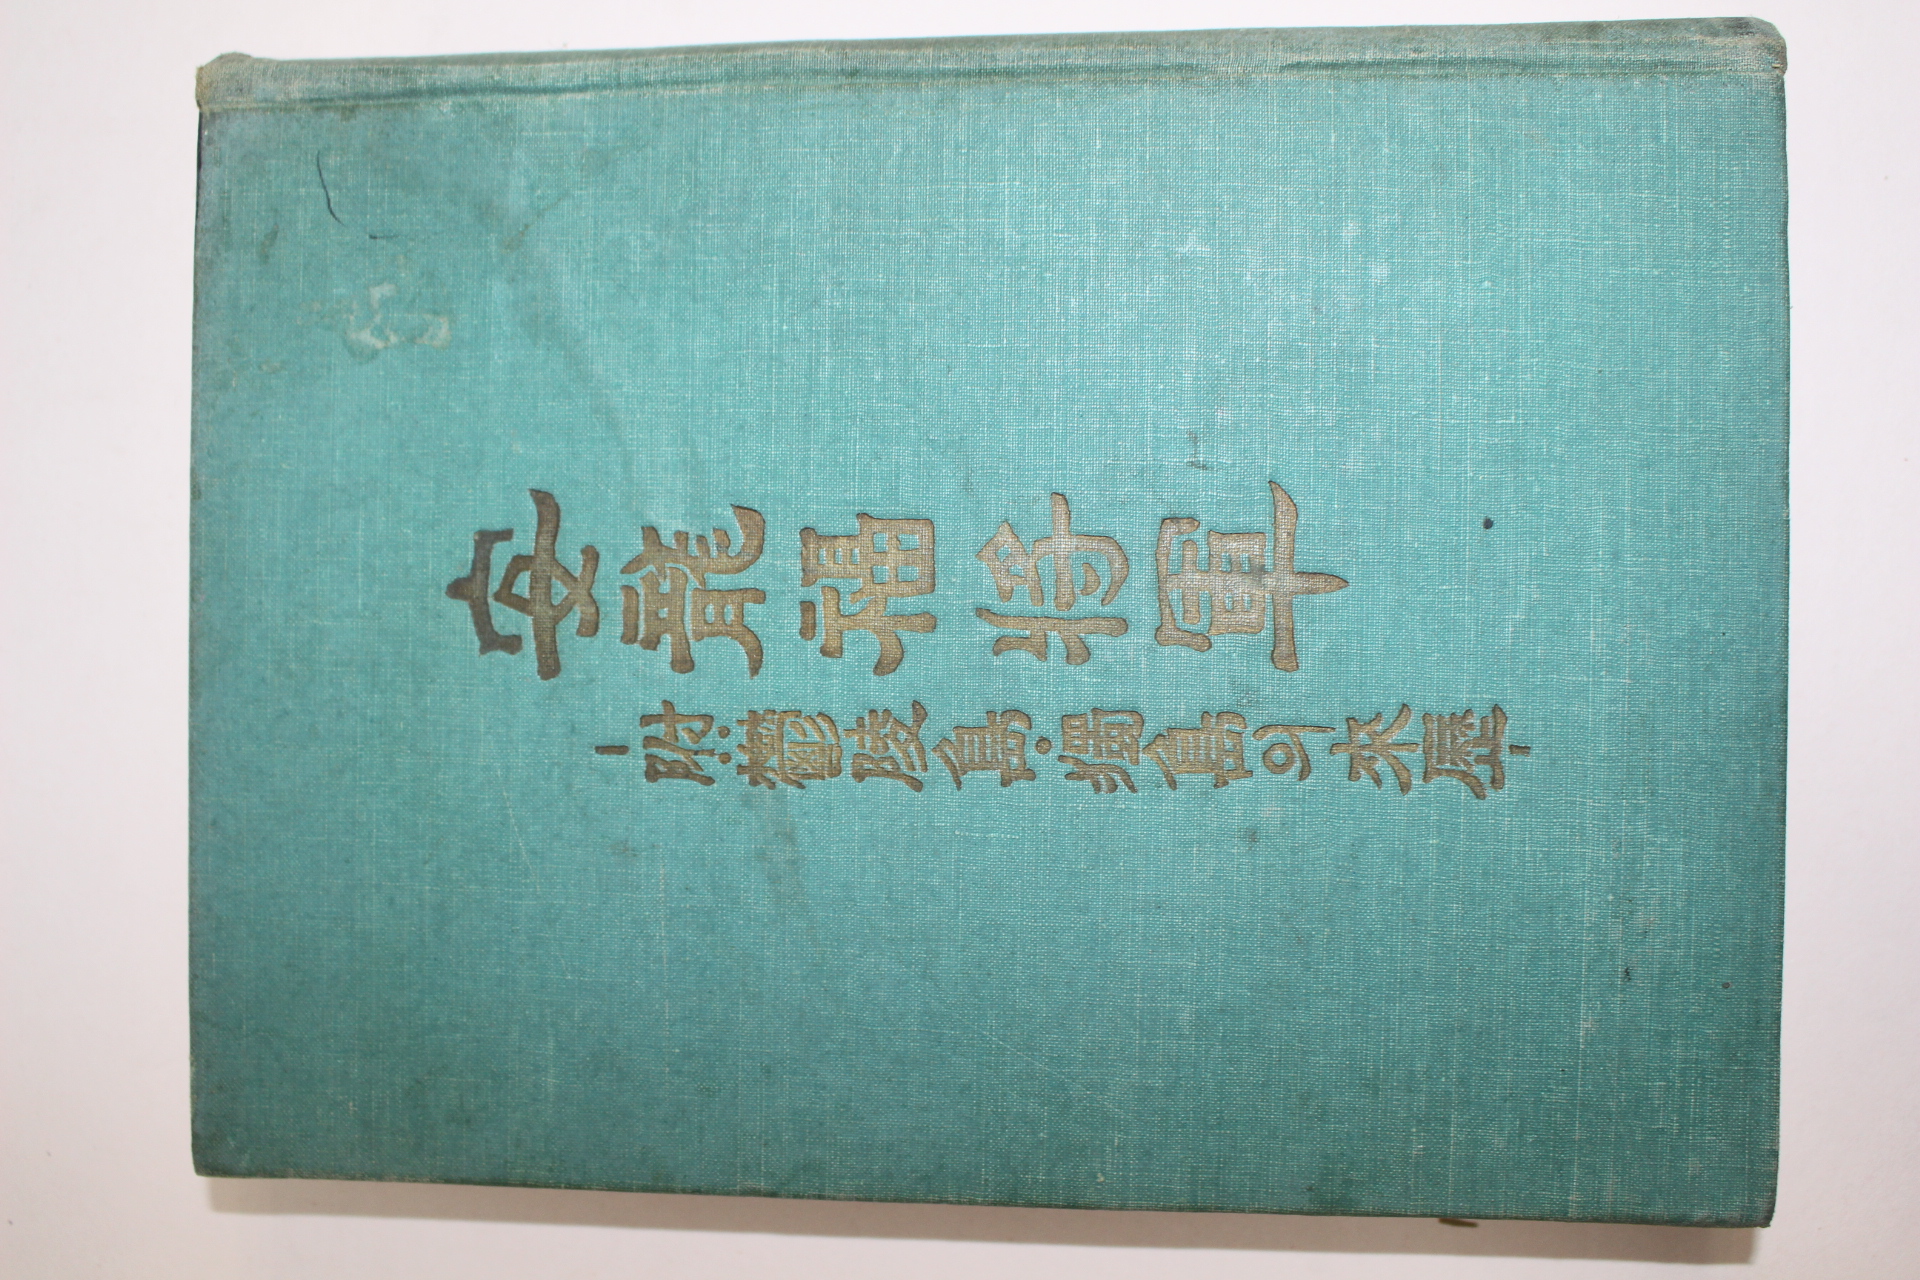 安龍福將軍
—附:鬱陵島·獨島의來歷—